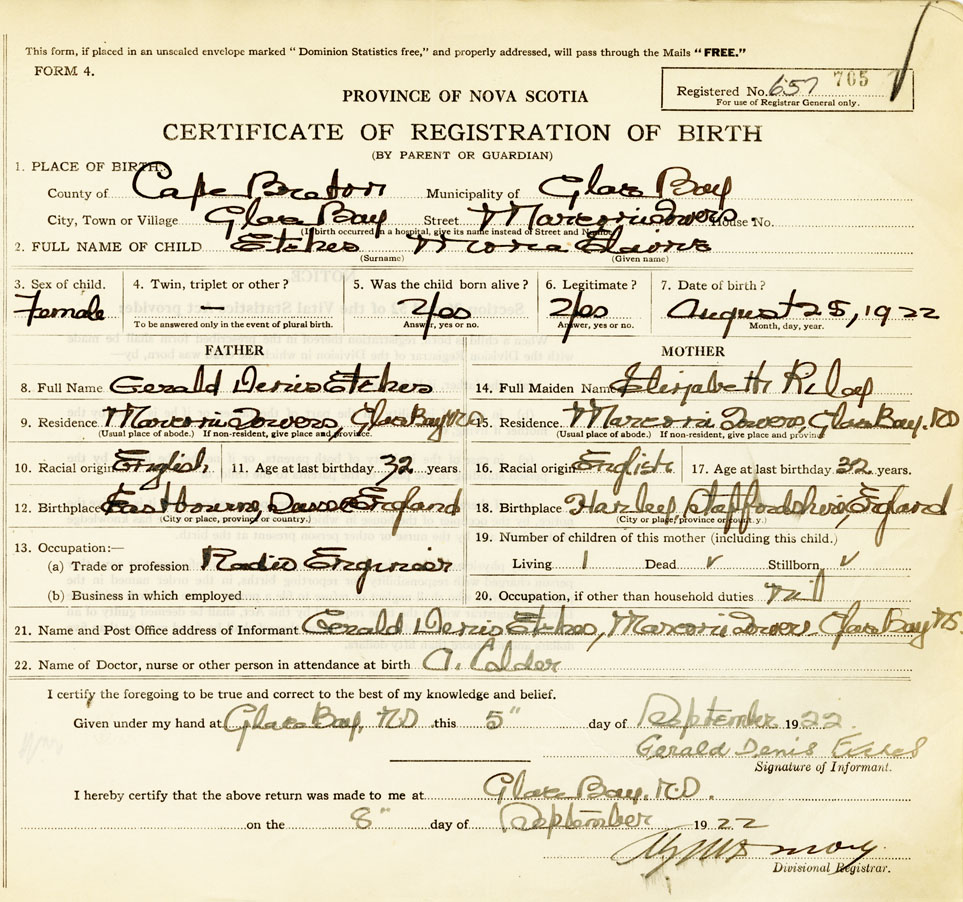 This form, if placed in an unsealed envelope marked “Dominion Statistics free,” and properly addressed, will pass through the Mails “FREE.”
FORM 4.
Registered No. 657 765
For use of Registrar General only.
PROVINCE OF NOVA SCOTIA
CERTIFICATE OF REGISTRATION OF BIRTH
(BY PARENT OR GUARDIAN)
1. PLACE OF BIRTH:
County of Cape Breton Municipality of Glace Bay
City, Town or Village Glace Bay Street Marconi Towers. House No.
(If birth occurred in a hospital, give its name instead of Street and No.)
2. FULL NAME OF CHILD
(Surname) (Given name)
3. Sex of child. 4. Twin, triplet or other? 5. Was the child born alive? 6. Legitimate? 7. Date of birth?
Female — Yes Yes August 25, 1922
To be answered only in the event of plural birth. Answer, yes or no. Answer, yes or no. Month, day, year.
FATHER MOTHER
8. Full Name Gerald Denis 14. Full Maiden Name Elizabeth Riley
9. Residence Marconi Towers, Glace Bay N.S. 15. Residence Marconi Towers, Glace Bay. N.S.
(Usual place of abode.) If non-resident, give place and province. (Usual place of abode.) If non-resident, give place and province
10. Racial origin English 11. Age at last birthday 32 years. 16. Racial origin English 17. Age at last birthday 32 years.
12. Birthplace Eastbourne, England 18. Birthplace Staffordshire, England
(City or place, province or country.) (City or place, province or country.)
13. Occupation:— 19. Number of children of this mother (including this child.)
(a) Trade or profession Radio Engineer Living 1 Dead ✓ Stillborn ✓
(b) Business in which employed 20. Occupation, if other than household duties nil
21. Name and Post Office address of Informant Gerald Denis Marconi Towers Glace Bay N.S.
22. Name of Doctor, nurse or other person in attendance at birth A. Calder
I certify the foregoing to be true and correct to the best of my knowledge and belief.
Given under my hand at Glace Bay, N.S. this 5" day of September 1922.
Gerald Denis
Signature of Informant.
I hereby certify that the above return was made to me at Glace Bay. N.S.
on the 8" day of September 1922
Divisional Registrar.